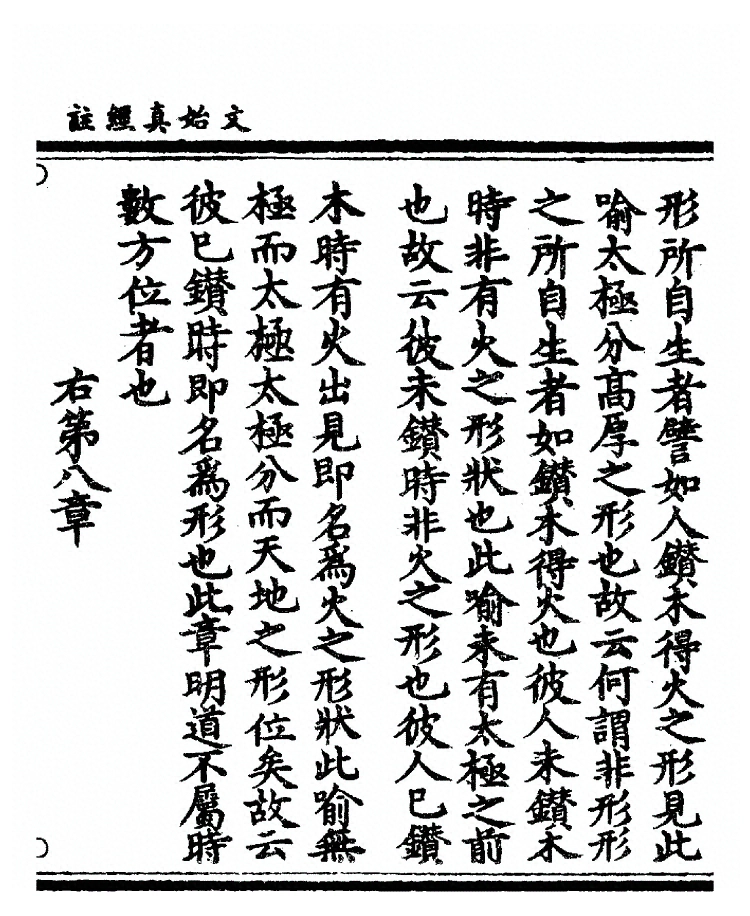 文始真經註
形所自生者譬如人鑚木得火之形見此
喻太極分高厚之形也故云何謂非形形
之所自生者如鑚木得火也彼人未鑚木
時非有火之形狀也此喻未有太極之前
也故云彼未鑚時非火之形也彼人已鑚
木時有火出見即名爲火之形狀此喻無
極而太極太極分而天地之形位矣故云
彼已鑚時即名爲形也此章明道不屬時
數方位者也
右第八章